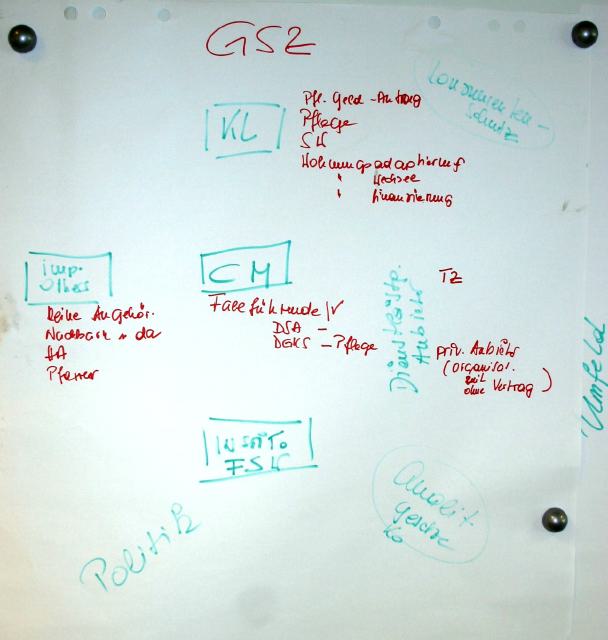 GSZ
Konsumenten-
schutz
KL
Pfl. Geld - Antrag
Pflege
SH
Wohnungsadaptierung
" Wechsel
" finanzierung
imp.
Others
CM
Dienstleistg.
Anbieter
TZ
Keine Angehör.
Nachbarn da
HA
Pfarrer
Fallführende/r
DSA -
DGKS - Pflege
priv. Anbieter
(Organisat.
mit
ohne Vertrag)
Umfeld
FSW
Politik